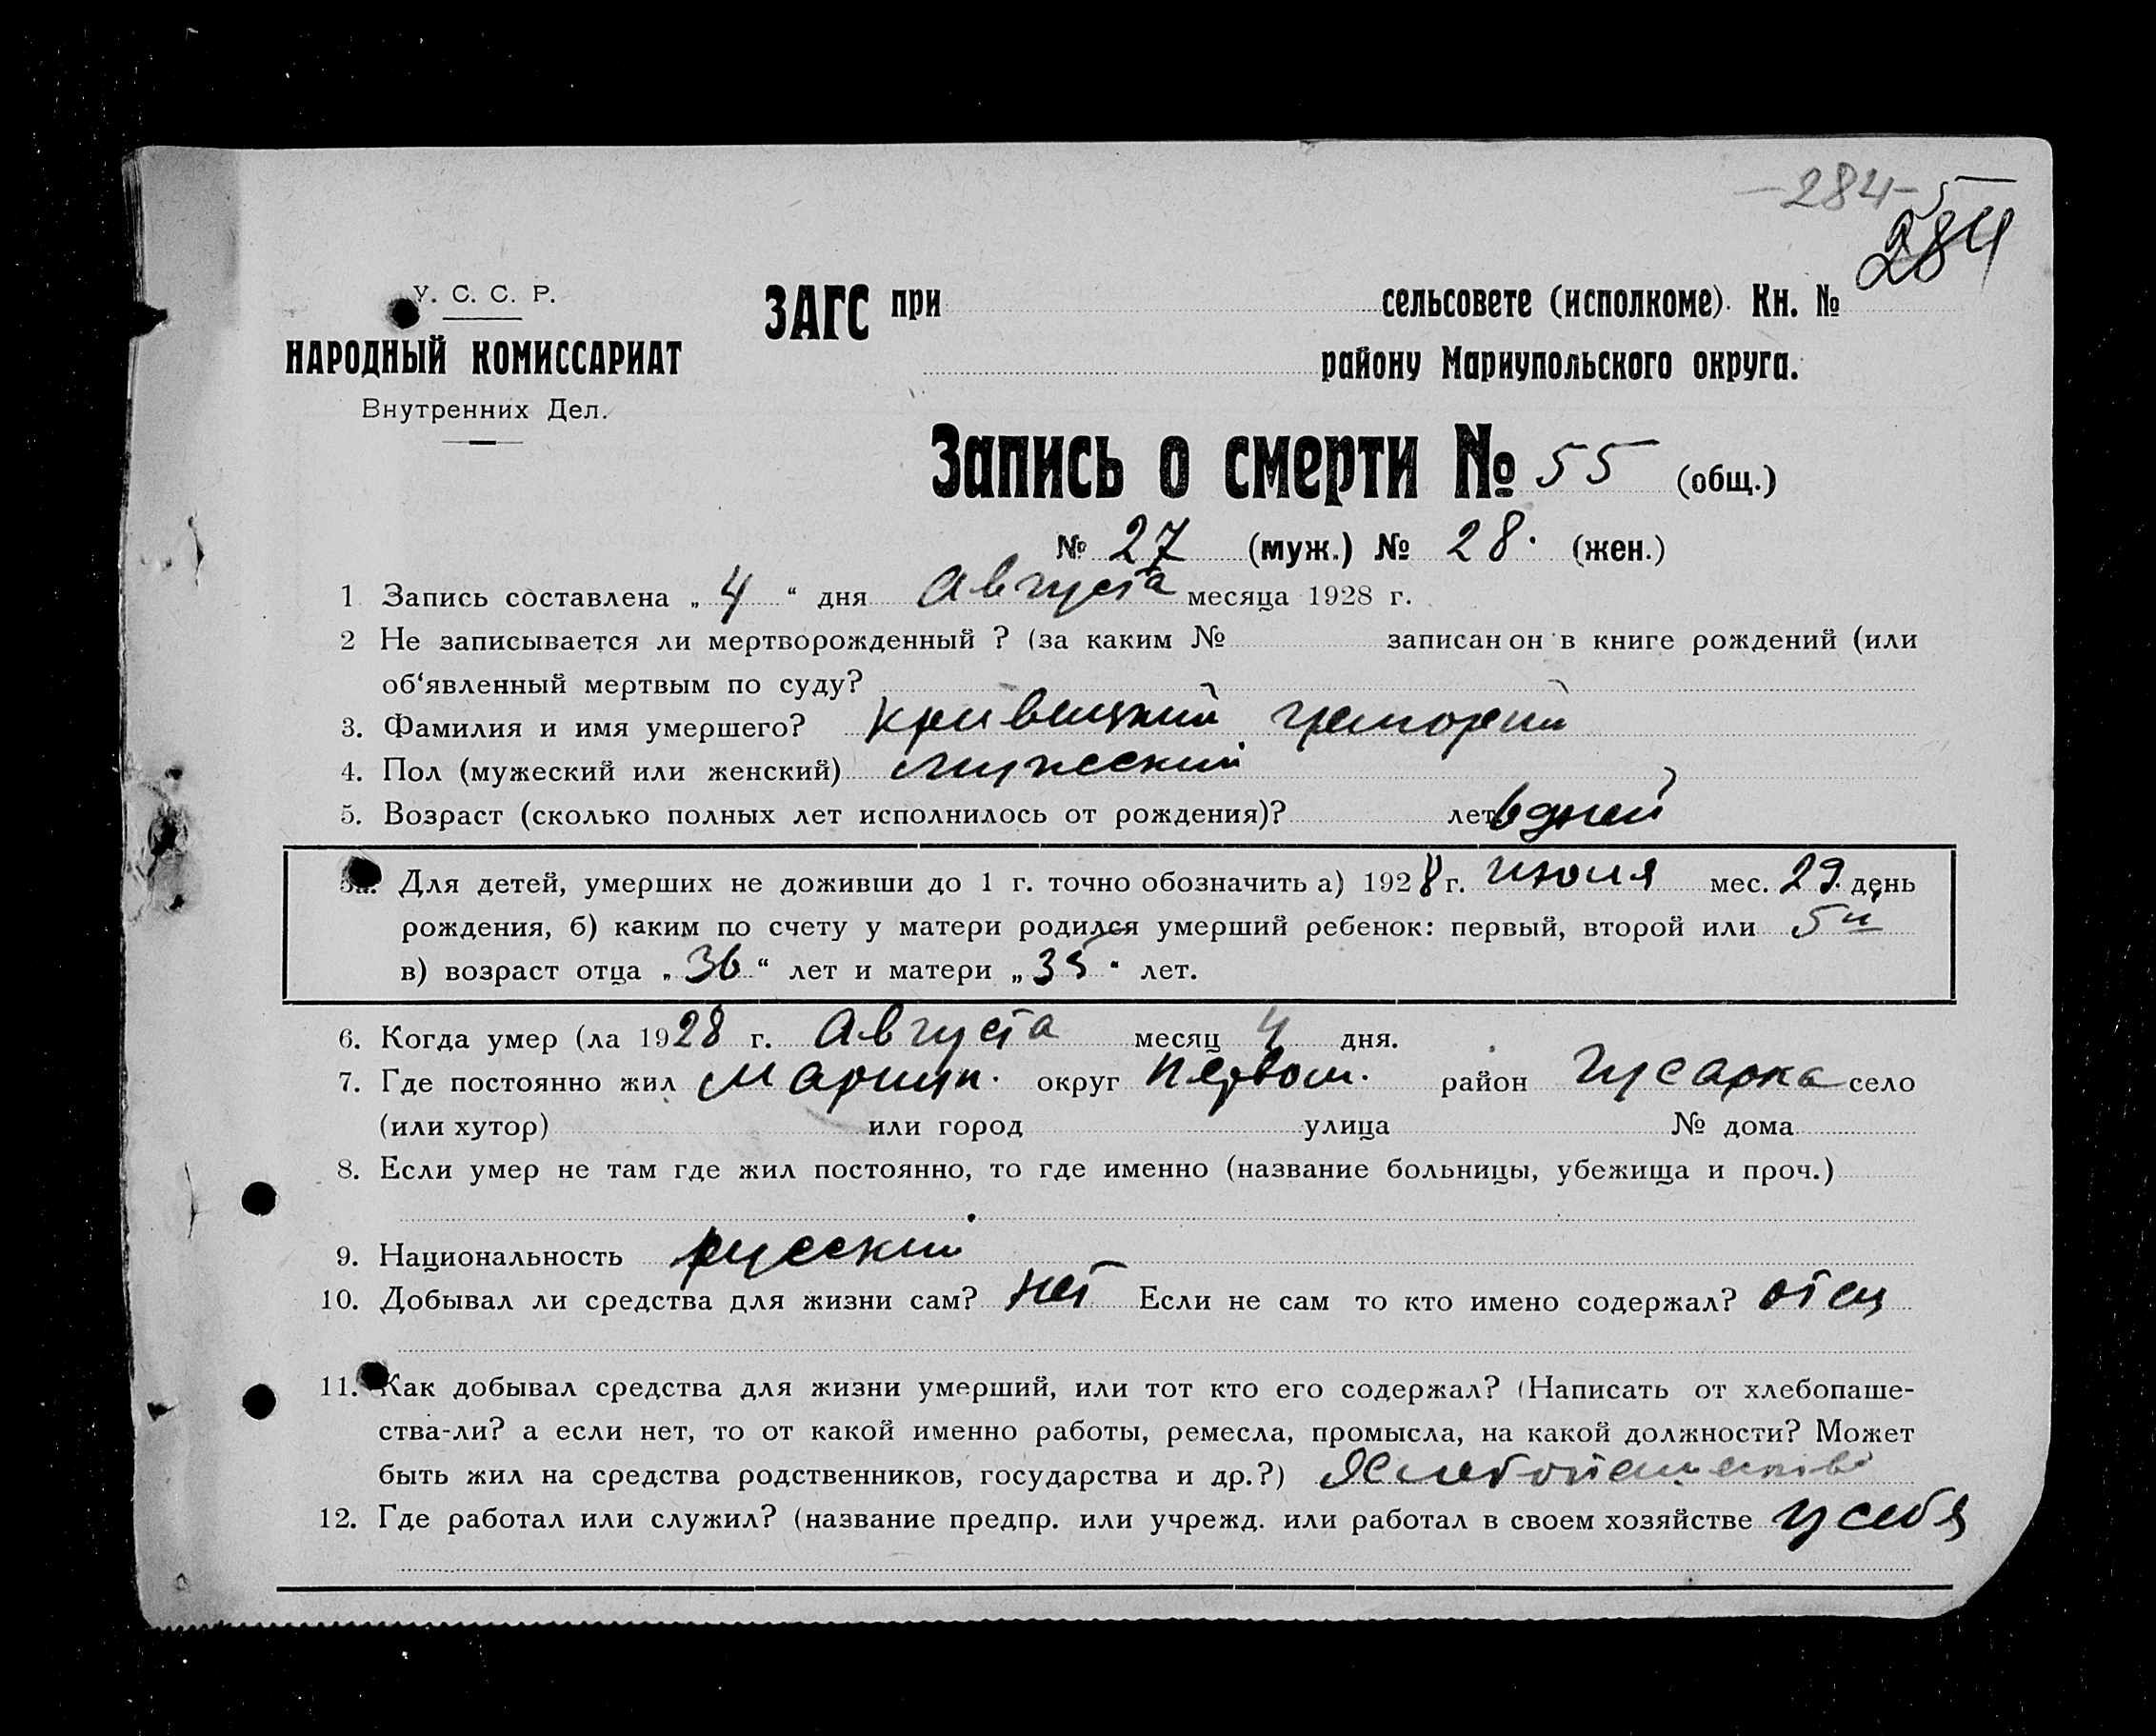 -284-5
284
У. С. С. Р.
НАРОДНЫЙ КОМИССАРИАТ
Внутренних Дел.
ЗАГС при сельсовете (исполкоме). Кн. №
району Мариупольского округа.
Запись о смерти № 55 (общ.)
№ 27 (муж.) № 28. (жен.)
1 Запись составлена „ 4 “ дня Августа месяца 1928 г.
2 Не записывается ли мертворожденный ? (за каким № записан он в книге рождений (или
об‘явленный мертвым по суду?
3. Фамилия и имя умершего? Кривицкий Григорий
4. Пол (мужеский или женский) Мужеский
5. Возраст (сколько полных лет исполнилось от рождения)? лет 6 дней
5а. Для детей, умерших не доживши до 1 г. точно обозначить а) 1928 г. Июля мес. 29. день
рождения, б) каким по счету у матери родился умерший ребенок: первый, второй или 5й
в) возраст отца „ 36 “ лет и матери „ 35 “ лет.
6. Когда умер (ла 1928 г. Августа месяц 4 дня.
7. Где постоянно жил Мариуп. округ Первом. район Гусарка село
(или хутор) или город улица № дома
8. Если умер не там где жил постоянно, то где именно (название больницы, убежища и проч.)
9. Национальность русский
10. Добывал ли средства для жизни сам? нет Если не сам то кто имено содержал? отец
11. Как добывал средства для жизни умерший, или тот кто его содержал? (Написать от хлебопаше-
ства-ли? а если нет, то от какой именно работы, ремесла, промысла, на какой должности? Может
быть жил на средства родственников, государства и др.?) Хлебопашество
12. Где работал или служил? (название предпр. или учрежд. или работал в своем хозяйстве у себя